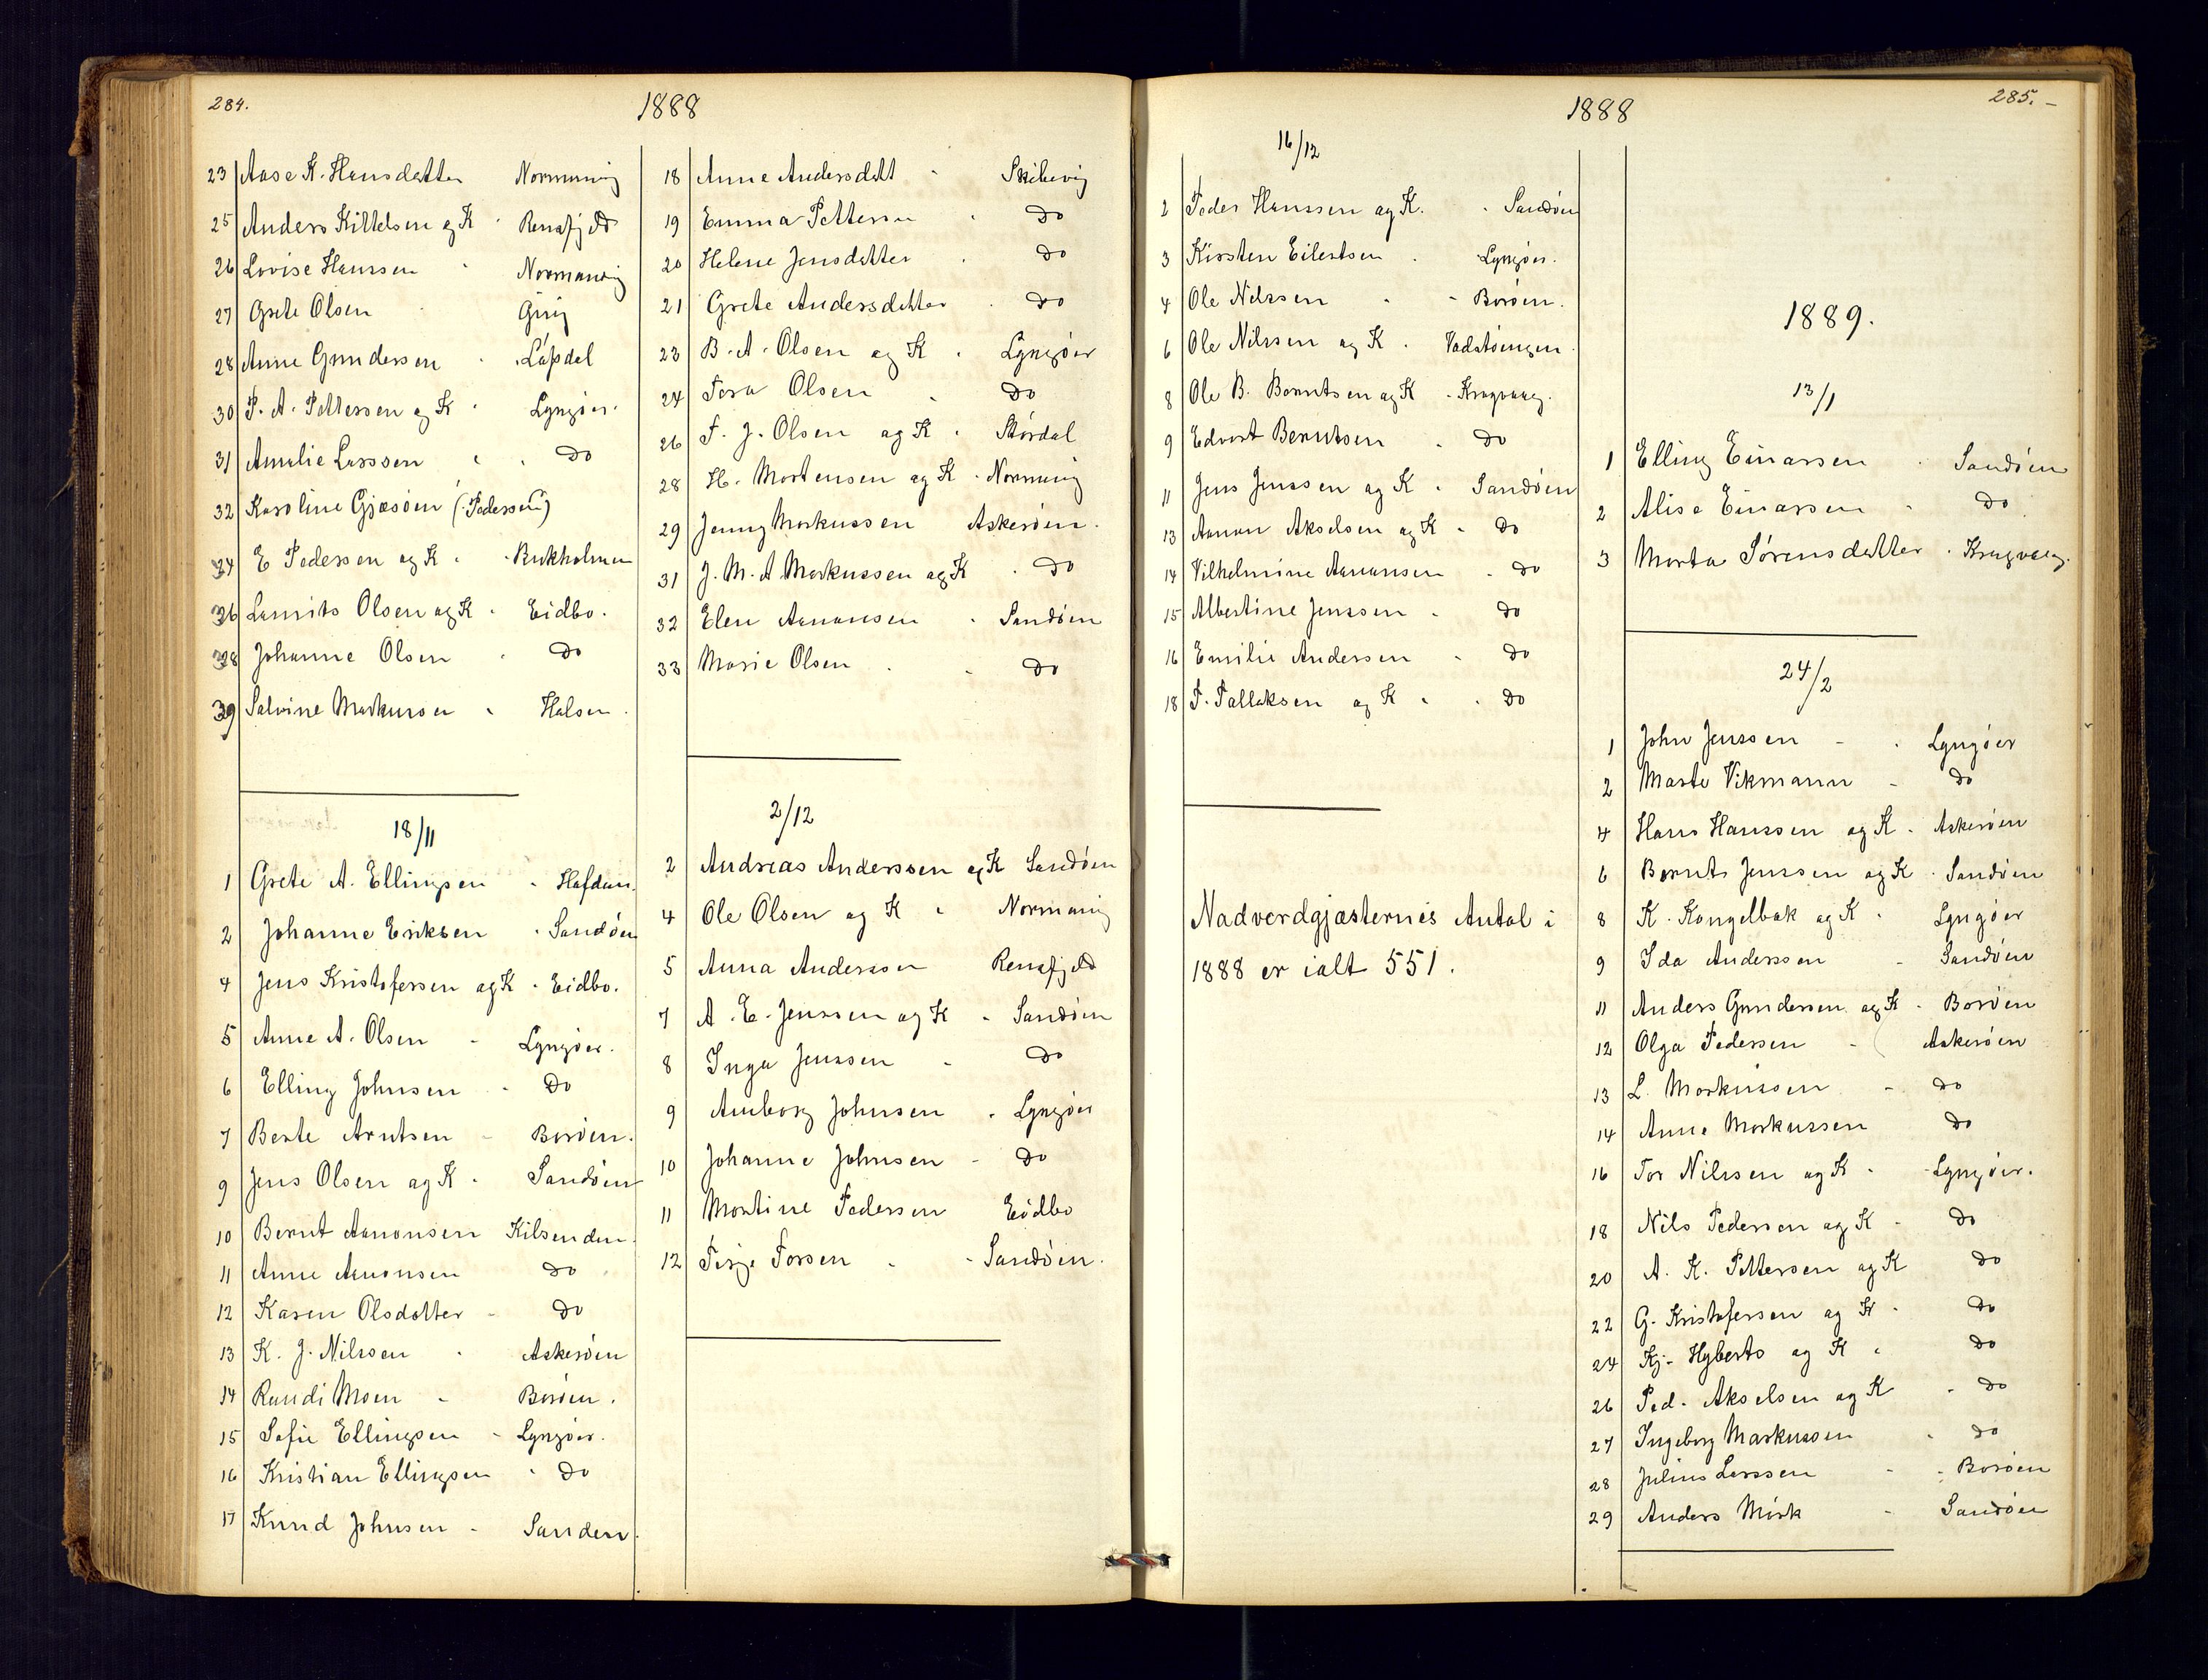 284.
1888
23 Aase K. Hansdatter Normanvig
25 Anders Kittelsen og K Rensfjeld
26 Lovise Hanssen Normanvig
27 Grete Olsen Gjvig
28 Anne Gundersen Låpdal
30 P. A. Pettersen og K Lyngøer.
31 Amalie Larssen do
32 Karoline Gjæsøen (Pedersen)
34 E Pedersen og K Birkholmen
36 Laurits Olsen og K Eidbo.
38 Johanne Olsen do
39 Salvine Markussen Halsen.
18/11
1 Grete A. Ellingsen Hafdan.
2 Johanne Eriksen Sandøen
4 Jens Kristofersen og K. Eidbo.
5 Anne A. Olsen Lyngøer.
6 Elling Johnsen do
7 Berte Arntsen Borøen.
9 Jens Olsen og K. Sandøen
10 Bernt Aanonsen Kilsenden.
11 Anne Aanonsen do
12 Karen Olsdatter do
13 K. J. Nilssen Askerøen
14 Randi Moen Borøen.
15 Sofie Ellingsen Lyngøer.
16 Kristian Ellingsen do
17 Knud Johnsen Sanden.
18 Anne Andersdatt Skibevig
19 Emma Petterson do
20 Helene Jensdatter do
21 Grete Andersdatter do
23 B. A. Olsen og K. Lyngøer
24 Tora Olsen do
26 F. J. Olsen og K. Størdal
28 H. Mortensen og K. Normanvig
29 Jenny Markussen Askerøen.
31 J. M. A Markussen og K do
32 Elen Aanonsen Sandøen
33 Marie Olsen do
2/12
2 Andreas Anderssen og K Sandøen
4 Ole Olsen og K Normanvig
5 Anna Andersson Rensfjeld
7 A. E. Jenssen og K Sandøen
8 Inga Jenssen do
9 Amborg Johnsen Lyngøer
10 Johanne Johnsen do
11 Martine Pedersen Eidbo
12 Terje Torsen Sandøen.
285.
1888
16/12
2 Peder Hanssen og K. Sandøen
3 Kirsten Eilertsen Lyngøer.
4 Ole Nilssen Borøen.
6 Ole Nilssen og K. Vadstøengen.
8 Ole B. Berntsen og K Kragvaag.
9 Edvart Berntsen do
11 Jens Jenssen og K. Sandøen
13 Aanon Akselsen og K do
14 Vilhelmine Aanonsen do
15 Albertine Jenssen do
16 Emilie Andersen do
18 T. Tallaksen og K do
Nadverdgjæsternes Antal i
1888 er ialt 551.
1889.
13/1
1 Elling Einarsen Sandøen
2 Alise Einarsen do
3 Marta Sørensdatter. Kragvaag.
24/2
1 John Jenssen Lyngøer
2 Marte Vikmann do
4 Hans Hanssen og K. Askerøen
6 Bernt Jenssen og K. Sandøen
8 K. Kongelbak og K. Lyngøer
9 Ida Anderssen Sandøen
11 Anders Gundersen og K. Borøen
12 Olga Pedersen Askerøen
13 L. Markussen do
14 Anne Markussen do
16 Tor Nilssen og K. Lyngøer.
18 Nils Pedersen og K do
20 A. K. Pettersen og K do
22 G. Kristofersen og K. do
24 Kj. Hyberts og K do
26 Ped. Akselsen og K do
27 Ingeborg Markussen do
28 Julius Larssen Borøen
29 Anders Mørk Sandøen